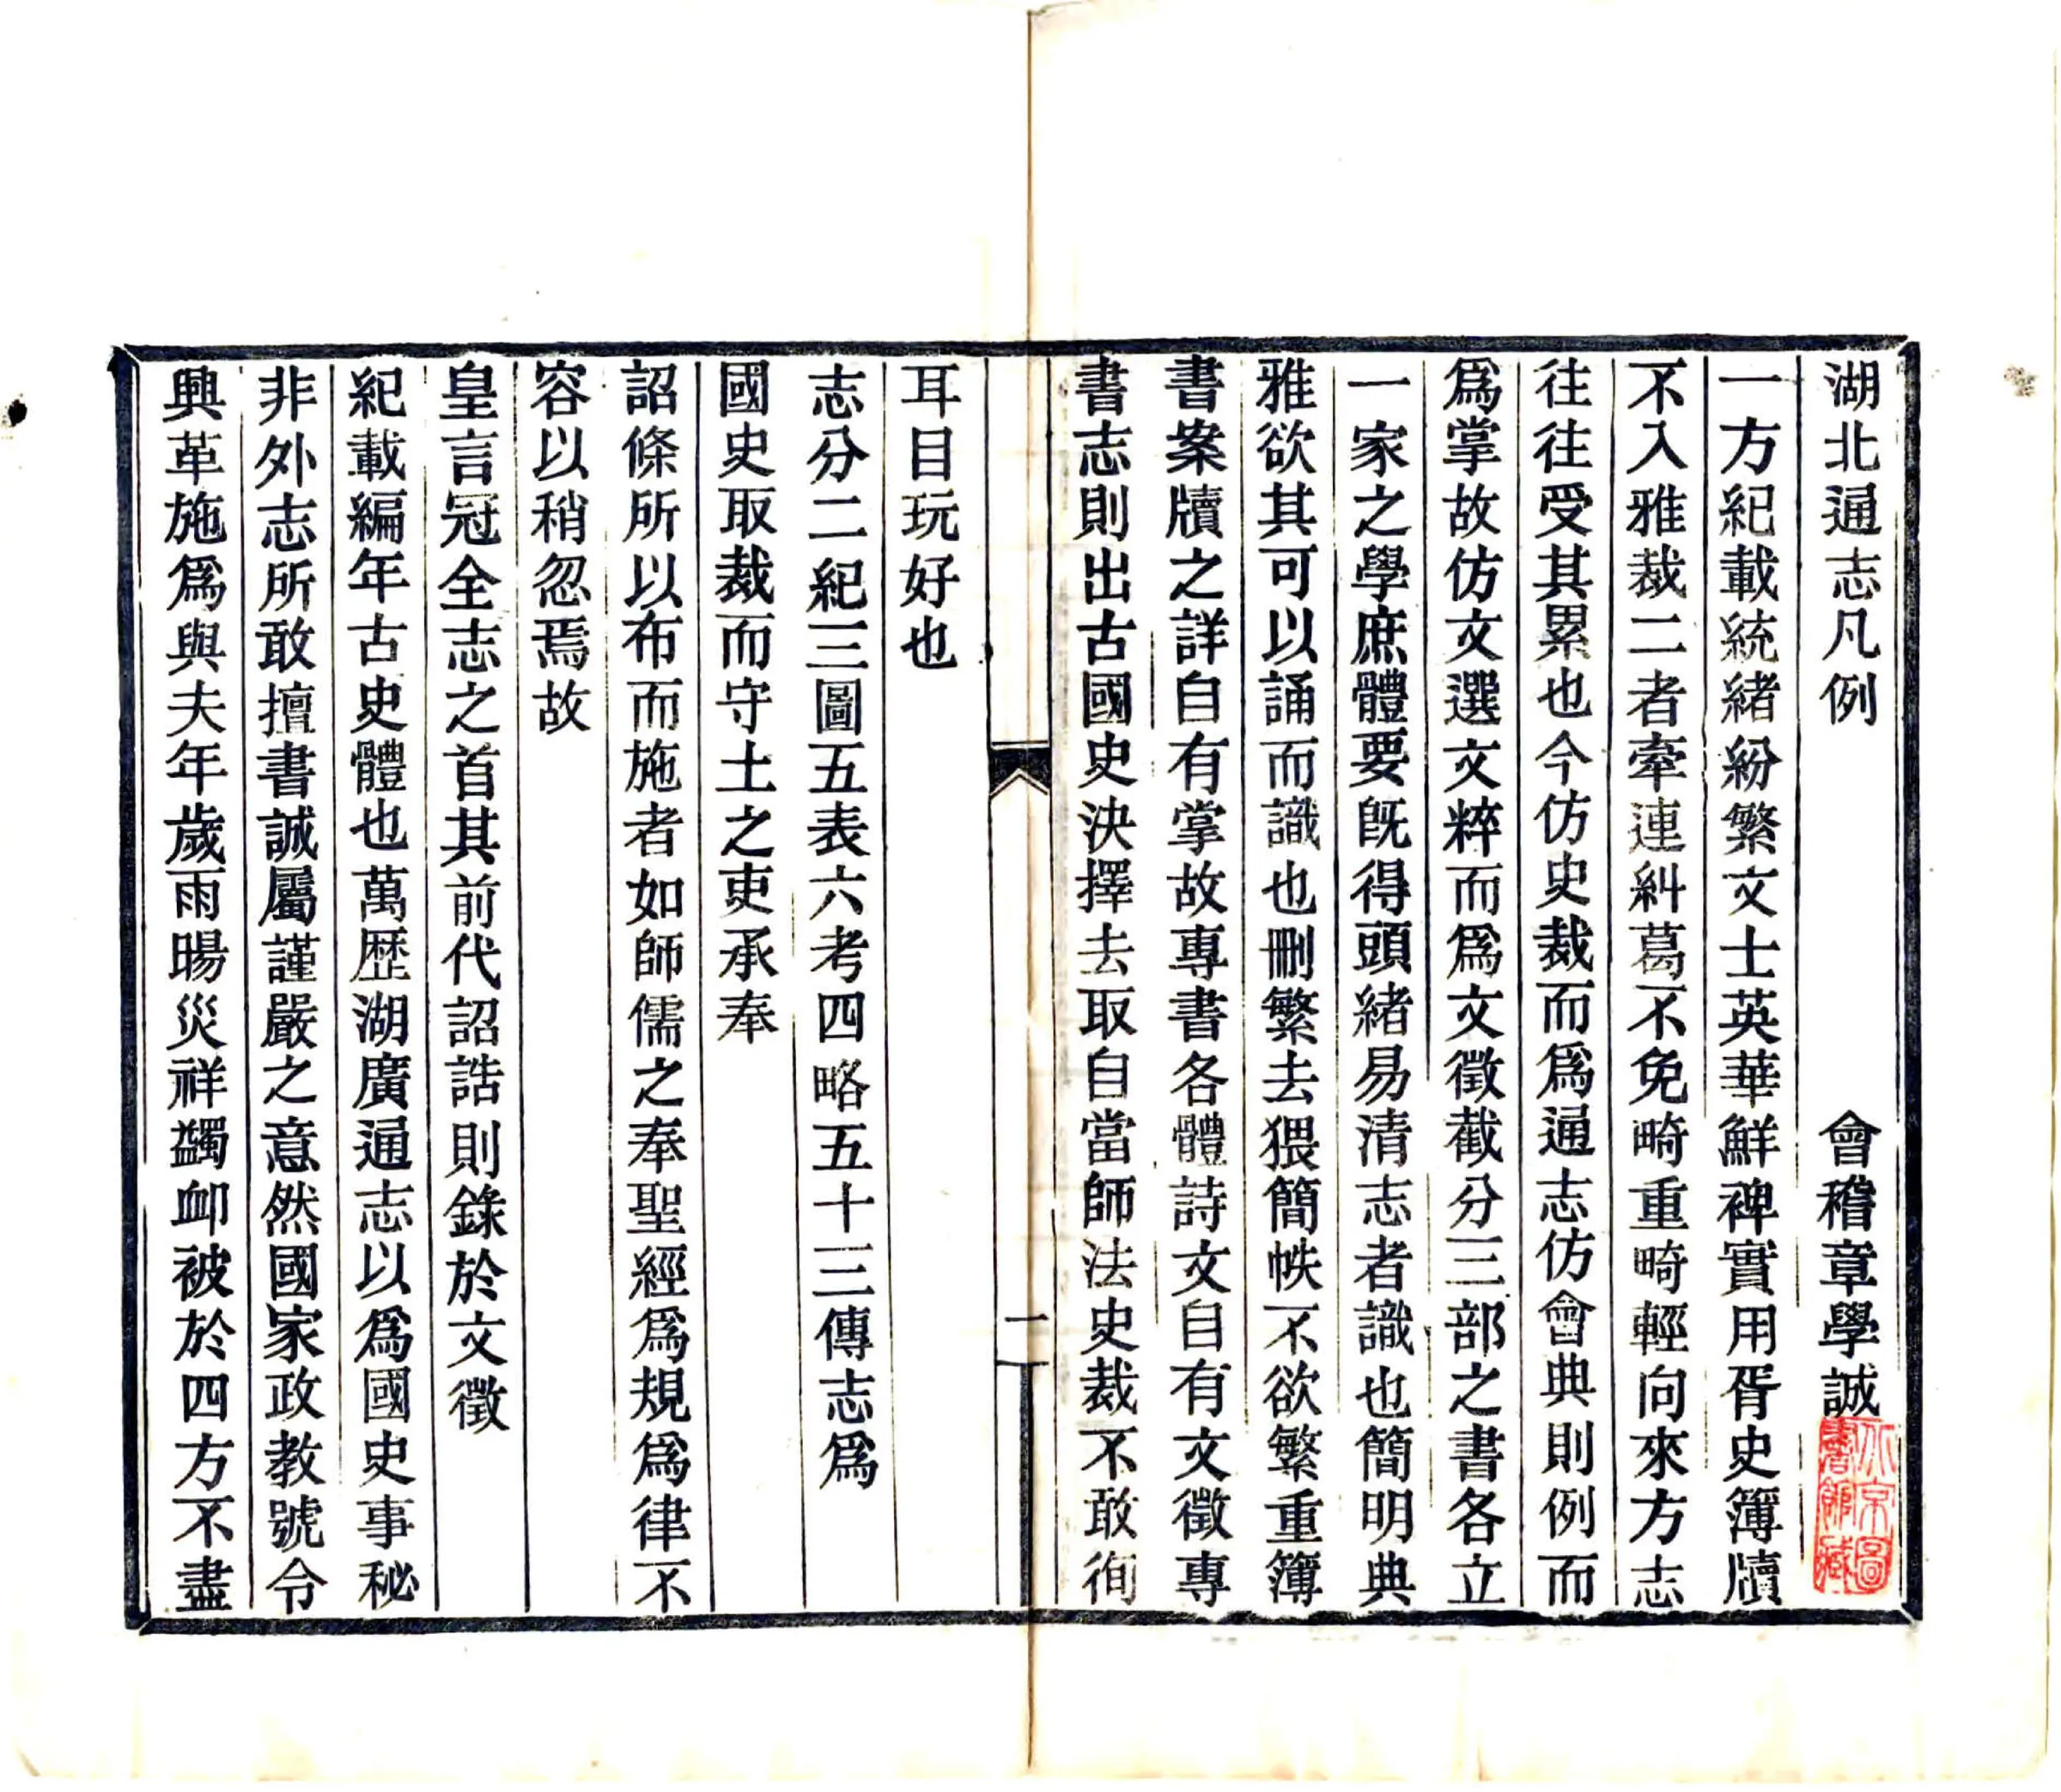 湖北通志凡例　會稽章學誠
一方紀載統緒紛繁文士英華鮮裨實用胥史簿牘
不入雅裁二者牽連糾葛不免畸重畸輕向來方志
往往受其累也今仿史裁而爲通志仿會典則例而
爲掌故仿文選文粹而爲文徵截分三部之書各立
一家之學庶體要旣得頭緒易清志者識也簡明典
雅欲其可以誦而識也刪繁去猥簡帙不欲繁重簿
書案牘之詳自有掌故專書各體詩文自有文徵專
書志則出古國史決擇去取自當師法史裁不敢徇
一
耳目玩好也
志分二紀三圖五表六考四略五十三傳志爲
國史取裁而守土之吏承奉
詔條所以布而施者如師儒之奉聖經爲規爲律不
容以稍忽焉故
皇言冠全志之首其前代詔誥則錄於文徵
紀載編年古史體也萬歷湖廣通志以爲國史事秘
非外志所敢擅書誠屬謹嚴之意然國家政教號令
興革施爲與夫年歲雨暘災祥蠲卹被於四方不盡
北京圖
書館藏